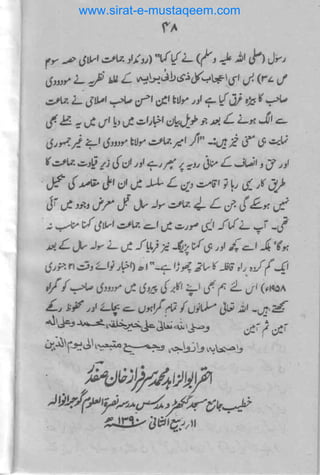 www.sirat-e-mustaqeem.com
۴۸
رسول (صلی اللہ علیہ وسلم) نے کیا کہا" (روئداد جماعت اسلامی حصہ سوم
ص ۳۷) بس اسی اعجاب کل ذی رائ برایہ کے غلط نظریہ نے مودودی
صاحب کا بیڑہ غرق کیا ہے اور مولانا امین احسن صاحب اصلاحی نے جماعت
سے الگ ہونے کے بعد جو طویل بیان اخبارات میں دیا اس میں یہ جملے بھی
نہایت ہی معنی خیز ہیں:۔ "اگر امیر جماعت مولانا مودودی اپنے غیر جمہوری
اور حق و انصاف کے منافی رویہ پر مصر رہے اور ان کی زیر قیادت جماعت کا
طریق کار یہی رہا تو اقامت دین کے سلسلہ میں ان اعلیٰ مقاصد کی تکمیل
نہیں ہو سکے گی جن کے لیے جماعت سولہ سال قبل معرض وجود میں آئی
تھی۔ آپ نے کہا کہ ایسی صورت میں اسے جماعت اسلامی کہنا مناسب نہ
ہوگا بلکہ اسے کچھ اور ہی کہنا پڑیگا۔ نیز فرمایا کہ میں نے سولہ سال کے بعد
ایک گم کردہ راہ قافلہ کا ساتھ چھوڑا ہے۔" اھ (اخبار نوائے وقت ۲۱ جنوری
۱۹۵۸ء) اس لئے ہم بھی اپنے اکابر کی پیروی میں مودودی صاحب کو گمراہ
سمجھتے ہیں۔ اللہ تعالیٰ مسلمانوں کو تمام گمراہوں سے بچائے اور محفوظ رکھے
آمین ثم آمین وصلی اللہ تعالیٰ علی خیر خلقہ محمد وعلی الہ
واصحابہ وازواجہ وجمیع متبعیہ الی یوم الدین
احقر ابو الزاہد محمد سرفراز خان صفدر
خطیب جامع مسجد گکھڑ و مدرس مدرسہ نصرۃ العلوم گوجرانوالہ
۱۱ ربیع الثانی ۱۳۹۰ھ